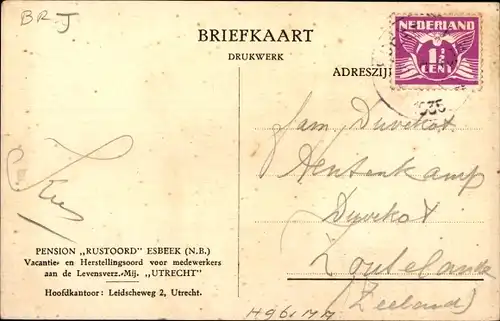 BRJ
BRIEFKAART
DRUKWERK
ADRESZIJ
NEDERLAND
1½
CENT
1935
Fam. Duvekot
Tentenkamp
Duvekot
Zoutelande
(Zeeland)
Kees
PENSION „RUSTOORD" ESBEEK (N.B.)
Vacantie- en Herstellingsoord voor medewerkers
aan de Levensverz.-Mij. „UTRECHT"
Hoofdkantoor: Leidscheweg 2, Utrecht.